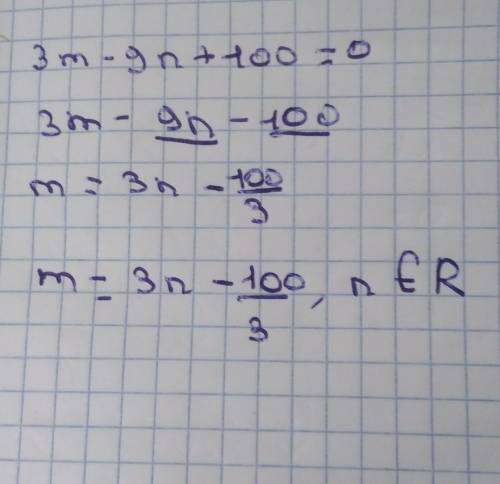 3m - 9n + 100 = 0
3m - 9n - 100
m = 3n - 100/3
m = 3n - 100/3, n ∈ R